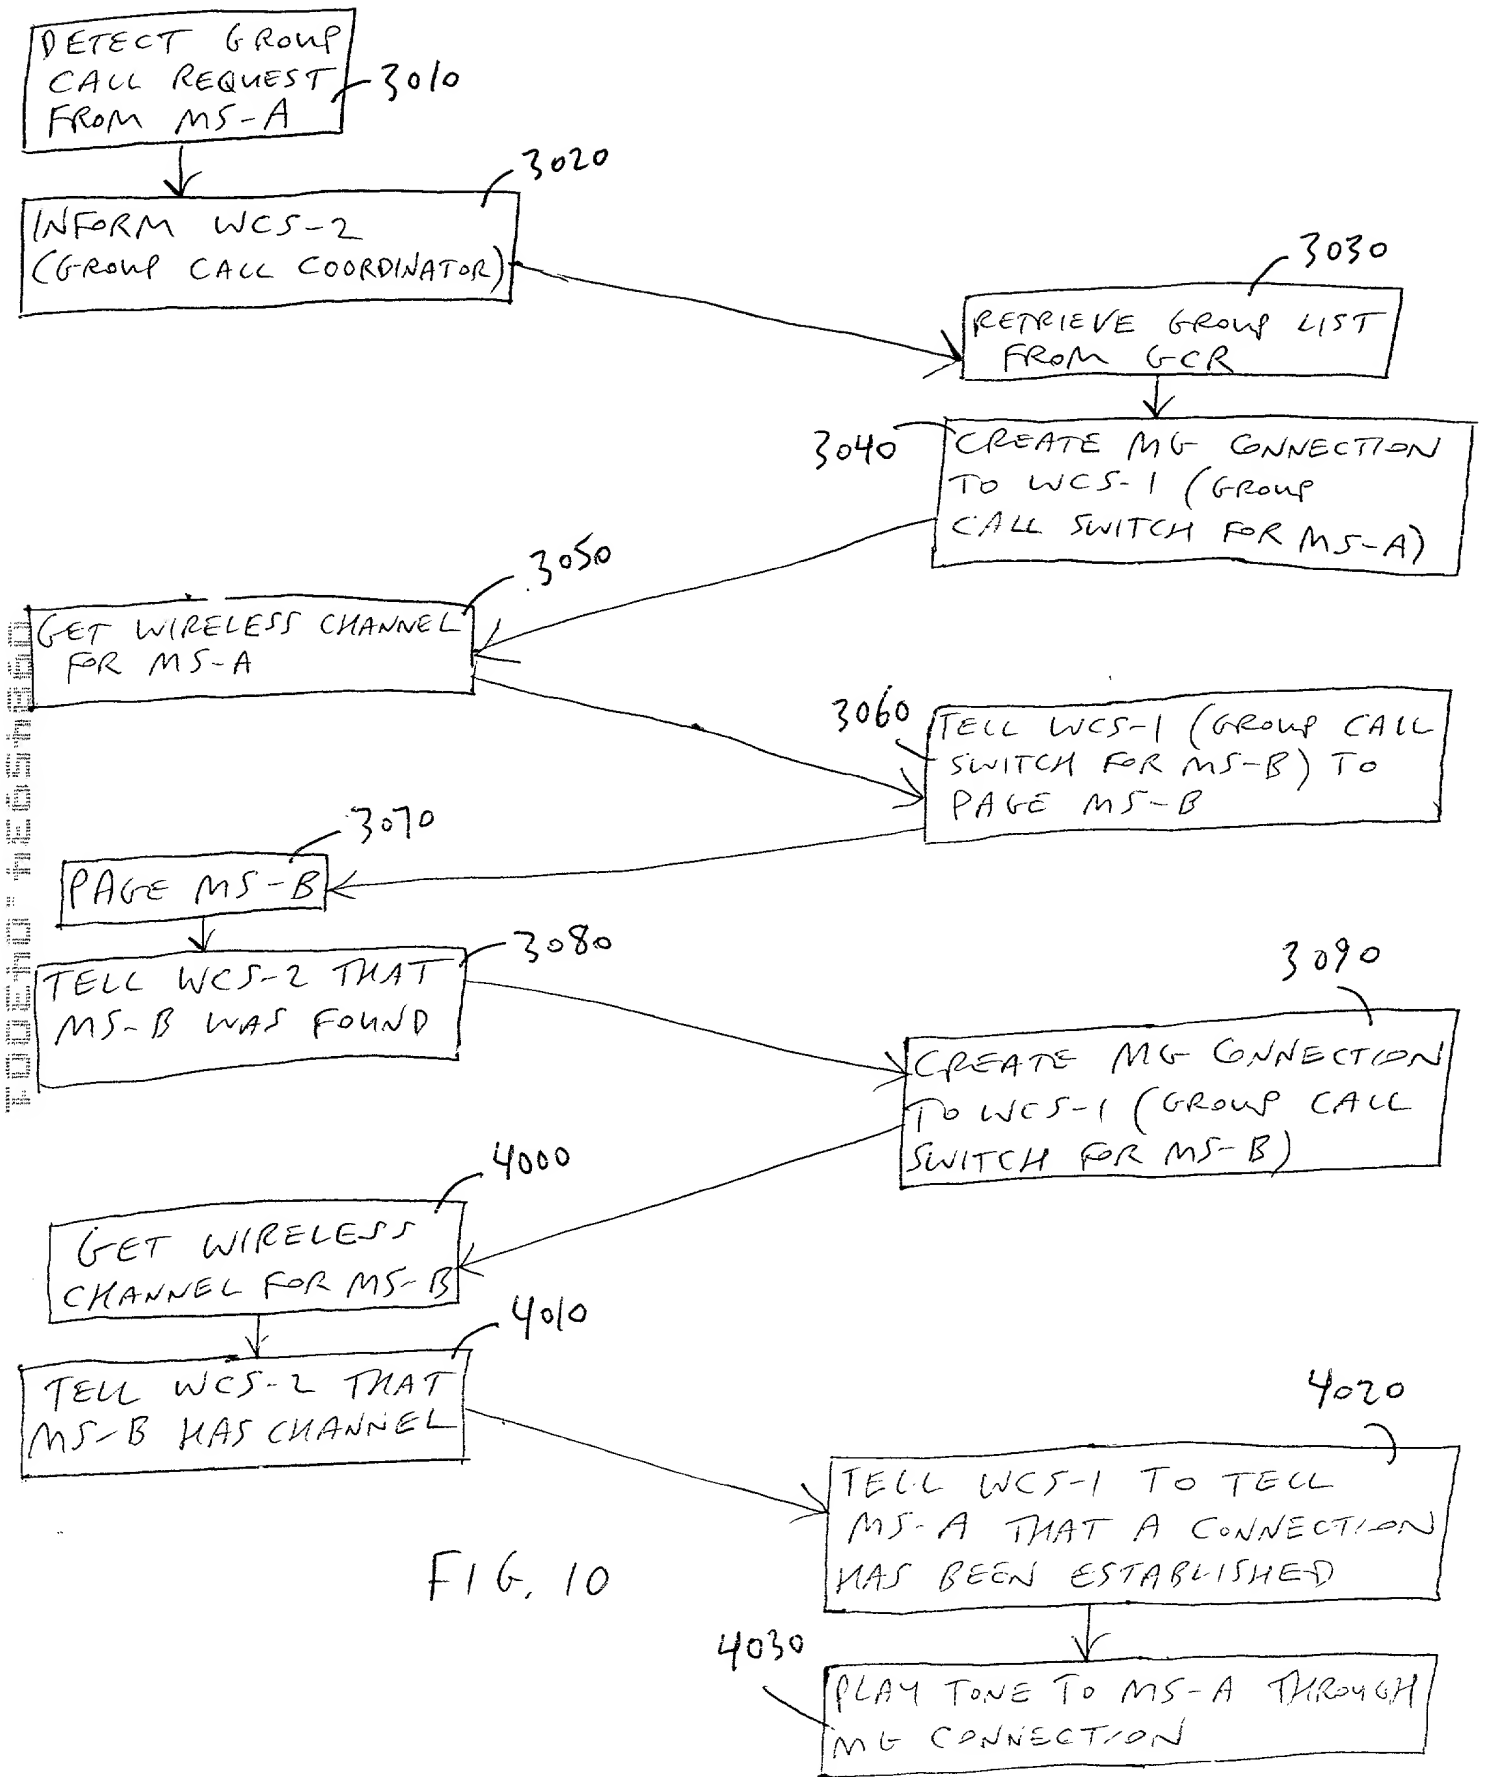 DETECT GROUP
CALL REQUEST
FROM MS-A
3010
3020
INFORM WCS-2
(GROUP CALL COORDINATOR)
3030
RETRIEVE GROUP LIST
FROM GCR
3040
CREATE MG CONNECTION
TO WCS-1 (GROUP
CALL SWITCH FOR MS-A)
3050
GET WIRELESS CHANNEL
FOR MS-A
3060
TELL WCS-1 (GROUP CALL
SWITCH FOR MS-B) TO
PAGE MS-B
3070
PAGE MS-B
3080
TELL WCS-2 THAT
MS-B WAS FOUND
3090
CREATE MG CONNECTION
TO WCS-1 (GROUP CALL
SWITCH FOR MS-B)
4000
GET WIRELESS
CHANNEL FOR MS-B
4010
TELL WCS-2 THAT
MS-B HAS CHANNEL
4020
TELL WCS-1 TO TELL
MS-A THAT A CONNECTION
HAS BEEN ESTABLISHED
4030
PLAY TONE TO MS-A THROUGH
MG CONNECTION
FIG. 10